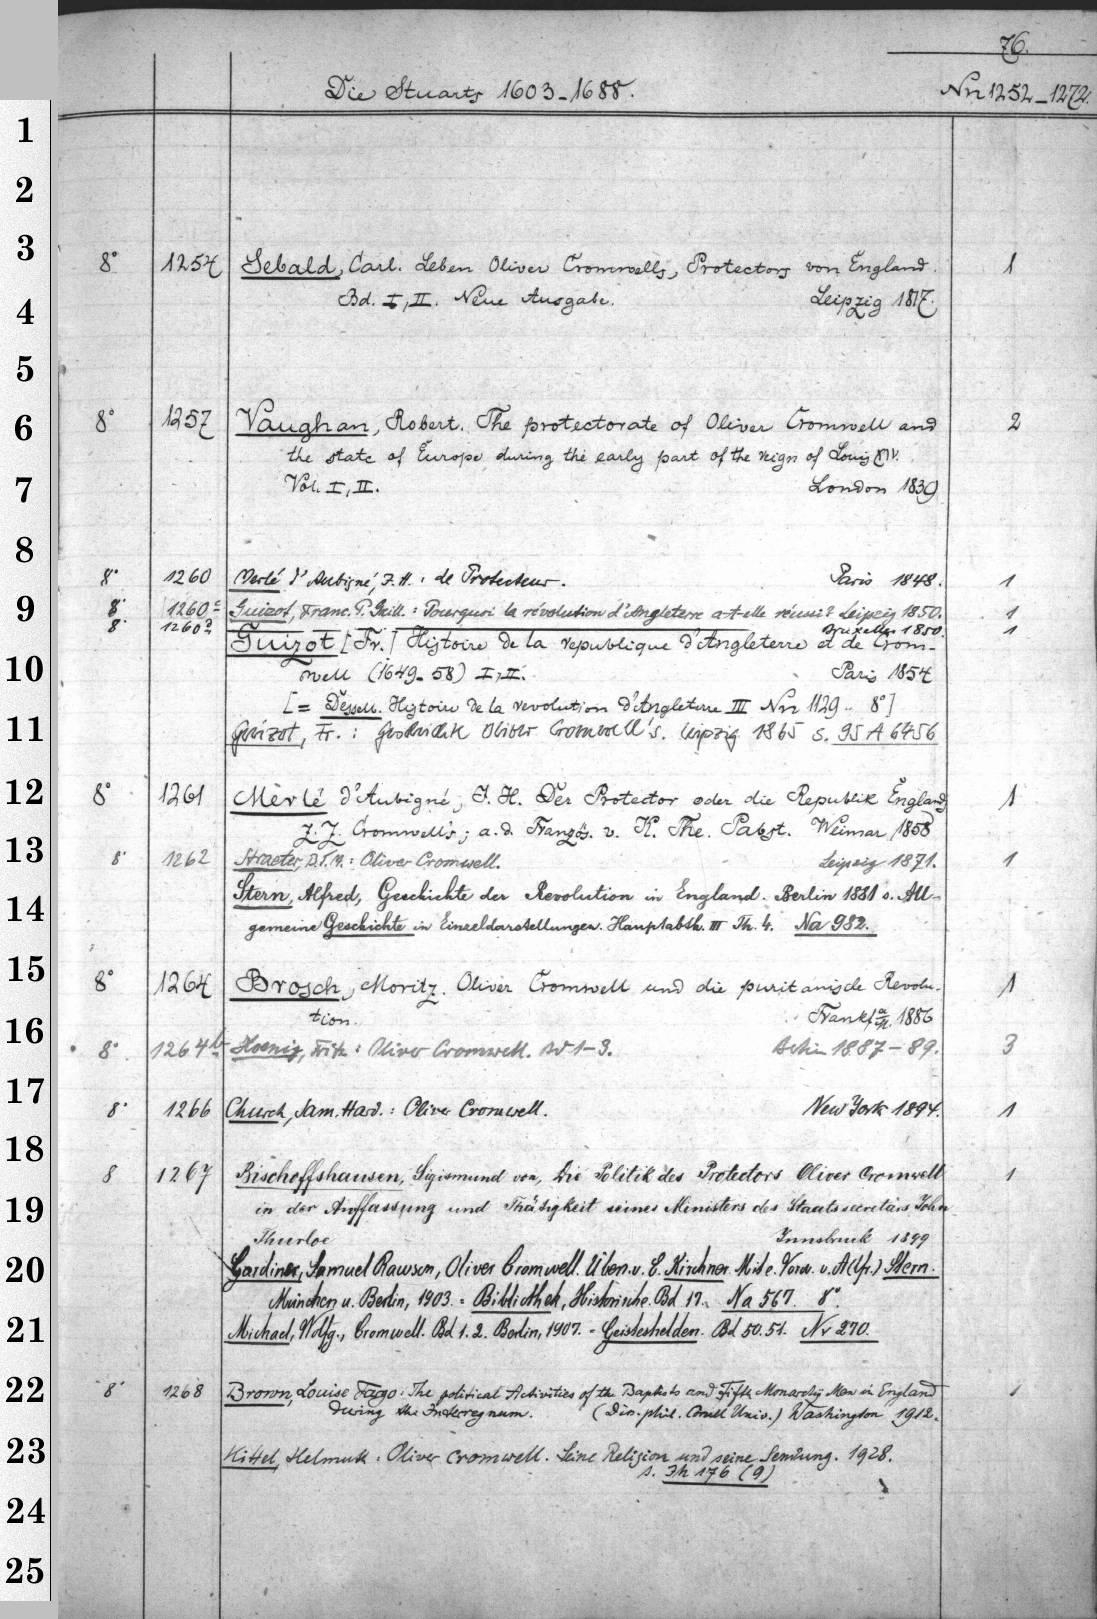 76.
Die Stuarts 1603-1688.
Nr. 1252-1272.
1
2
3
8° 1254 Sebald, Carl. Leben Oliver Cromwells, Protectors von England. 1
Bd. I, II. Neue Ausgabe. Leipzig 1817.
4
5
6
8° 1257 Vaughan, Robert. The protectorate of Oliver Cromwell and 2
the state of Europe during the early part of the reign of Louis XIV.
Vol. I, II. London 1839
7
8
8° 1260 Merlé d'Aubigné, J. H.: de Protecteur. Paris 1848. 1
9
8° 1260c Guizot, Franc. P. Guill.: Pourquoi la révolution d'Angleterre a-t-elle réussi? Leipzig 1850. 1
8° 1260d Bruxelles 1850. 1
Guizot [Fr.] Histoire de la republique d'Angleterre et de Crom-
10
well (1649-58) I, II. Paris 1854
[= Dessen. Histoire de la revolution d'Angleterre III Nr 1129.. 8°]
11
Guizot, Fr.: Geschichte Oliver Cromwell's. Leipzig 1865 s. 95 A 6456
12
8° 1261 Mèrlé d'Aubigné, J. H. Der Protector oder die Republik England 1
z. Z. Cromwell's; a. d. Französ. v. K. The. Pabst. Weimar 1858
13
8° 1262 Straeter, D. T. M.: Oliver Cromwell. Leipzig 1871. 1
Stern, Alfred, Geschichte der Revolution in England. Berlin 1881 s. All-
14
gemeine Geschichte in Einzeldarstellungen. Hauptabth. III Th. 4. Na 982.
15
8° 1264 Brosch, Moritz. Oliver Cromwell und die puritanische Revolu- 1
tion. Frankf. a/M. 1886
16
8° 1264b Hoenig, Fritz: Oliver Cromwell. Bd 1-3. Berlin 1887-89. 3
17
8° 1266 Church, Sam. Hard.: Oliver Cromwell. New York 1894. 1
18
8 1267 Bischoffshausen, Sigismund von, Die Politik des Protectors Oliver Cromwell 1
19
in der Auffassung und Thätigkeit seines Ministers des Staatssecretärs John
Thurloe Innsbruck 1899
20
Gardiner, Samuel Rawson, Oliver Cromwell. Übers. v. E. Kirchner Mit e. Vorw. v. A(lfr.) Stern.
München u. Berlin, 1903. = Bibliothek, Historische. Bd 17. Na 567. 8°.
21
Michael, Wolfg., Cromwell. Bd 1. 2. Berlin, 1907. - Geisteshelden. Bd 50. 51. Nr 270.
22
8° 1268 Brown, Louise Fargo: The political Activities of the Baptists and Fifth Monarchy Men in England 1
during the Interregnum. (Diss. phil. Cornell Univ.) Washington 1912.
23
Kittel, Helmuth: Oliver Cromwell. Seine Religion und seine Sendung. 1928.
s. Jh 176 (9)
24
25